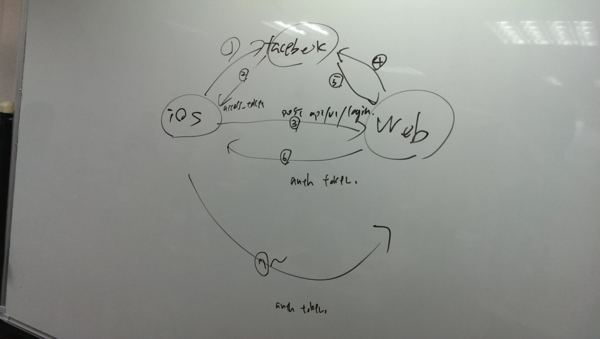 ① facebook
② access_token
iOS
post api/v1/login.
③
④
⑤
Web
⑥
auth token.
⑦~
auth token.